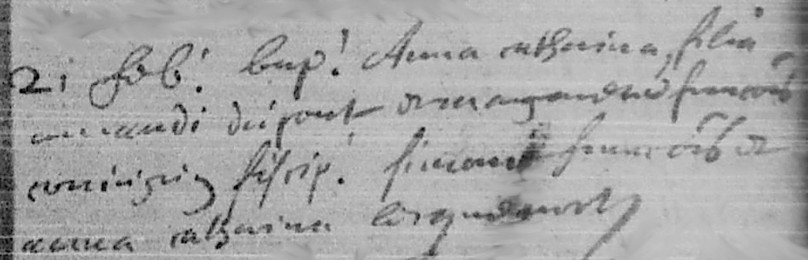 21 feb! bap! Anna catharina, filia
amandi dupont et margaretae francois
coniugum suscip! simon francois et
anna catharina